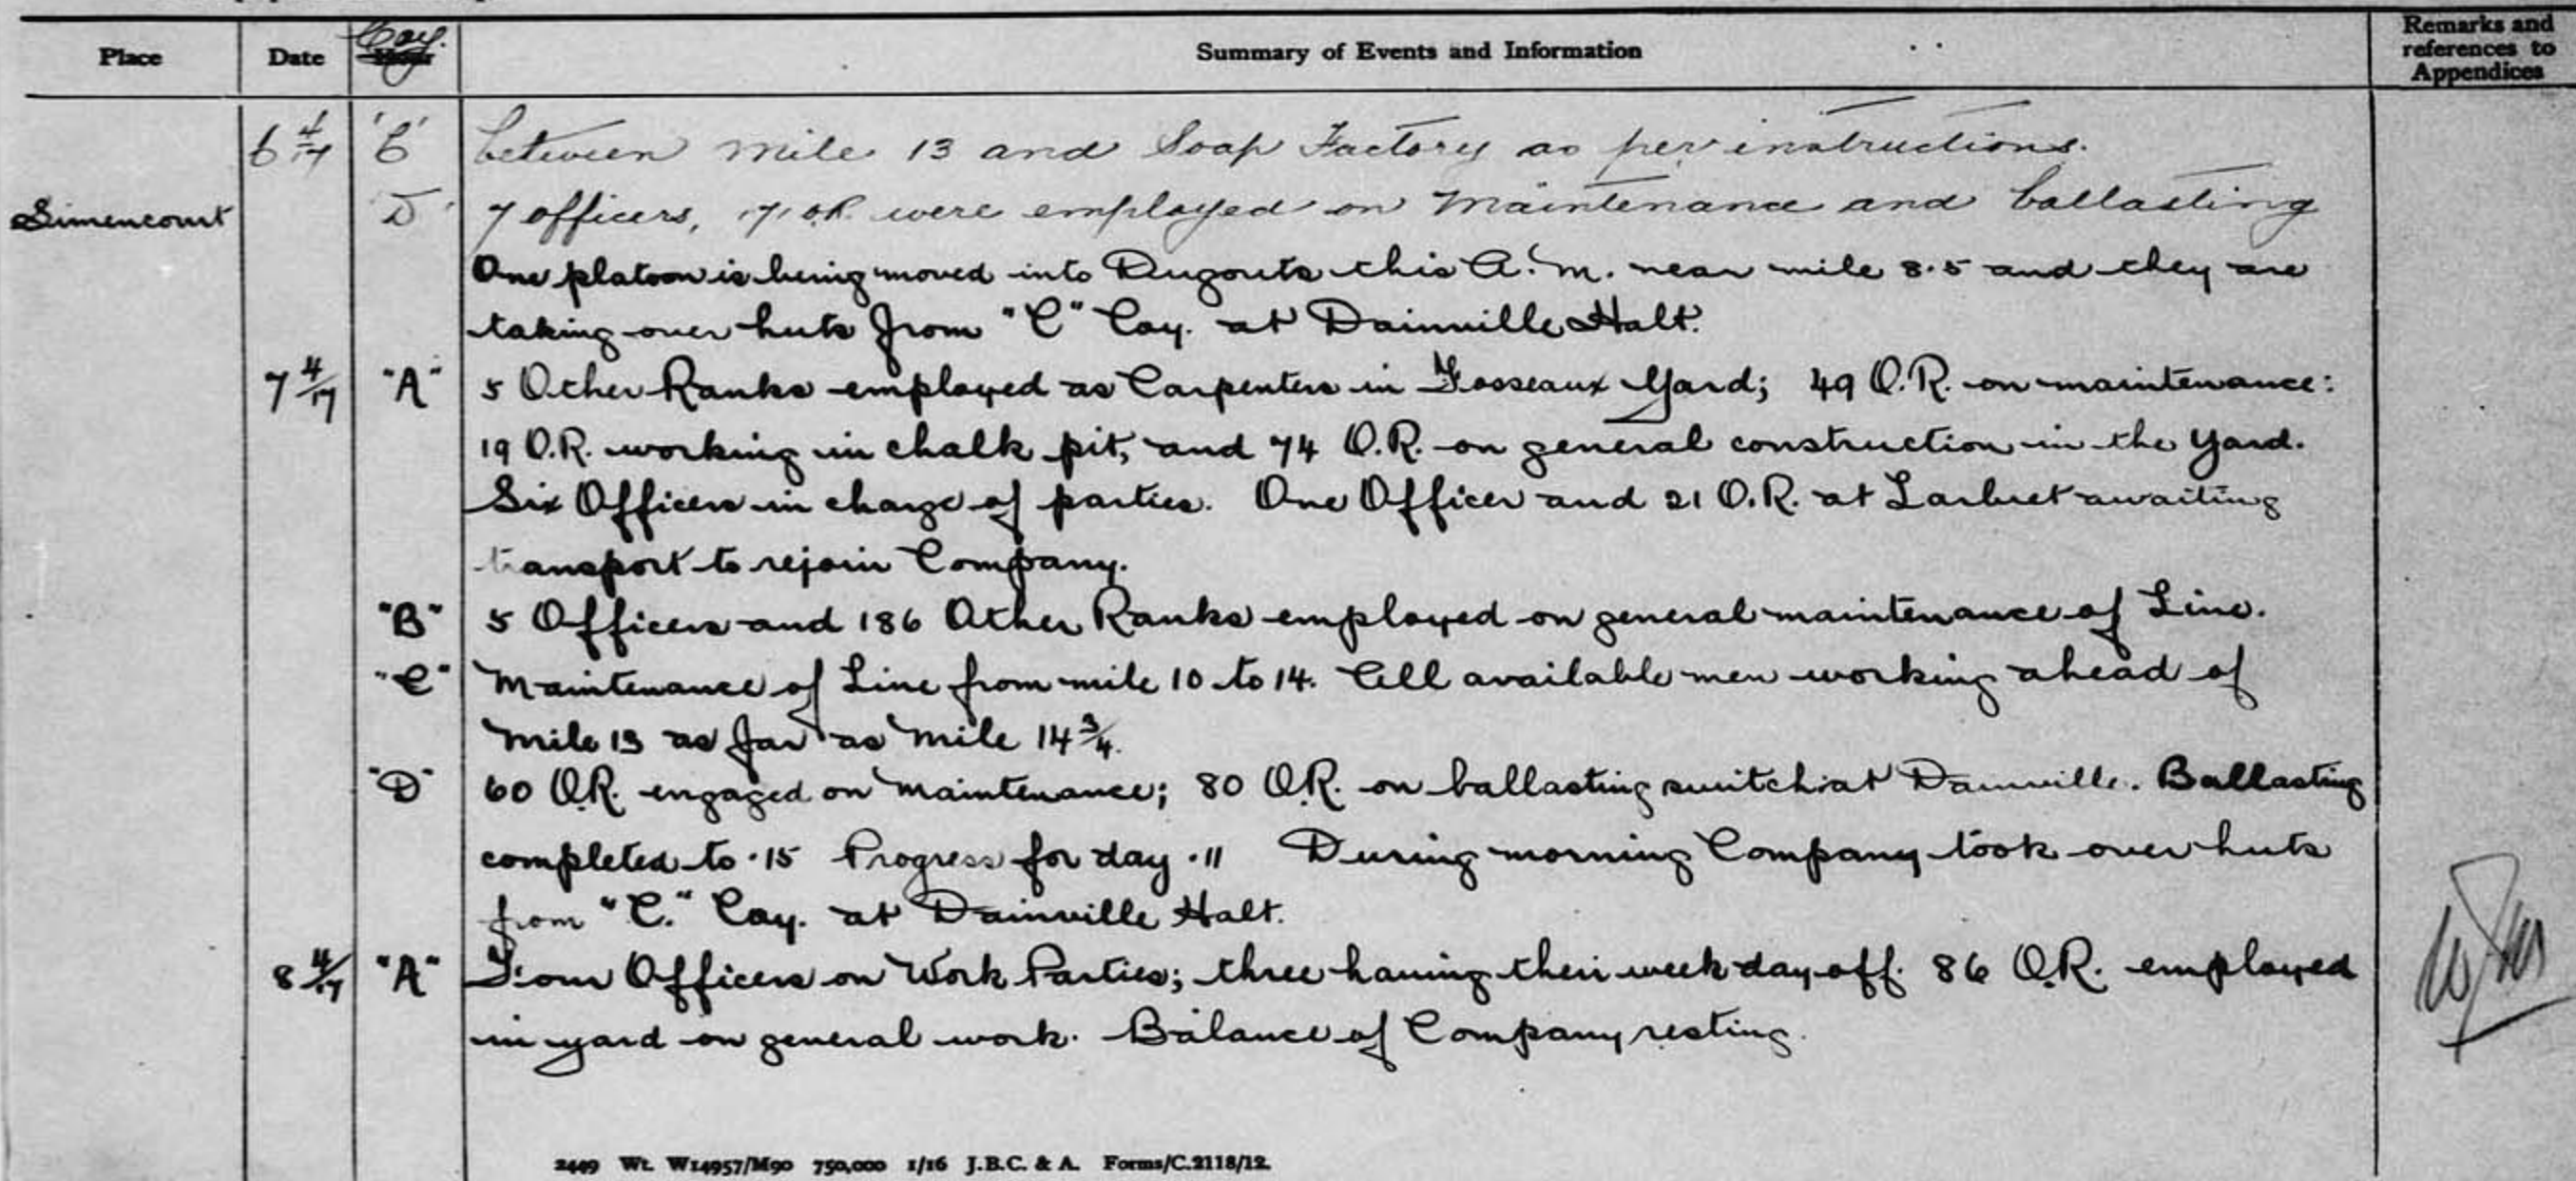 Place Date Coy. Hour Summary of Events and Information Remarks and references to Appendices
6 4/17 'C' between mile 13 and Soap Factory as per instructions.
Simencourt D' 7 officers, 171 O.R. were employed on Maintenance and ballasting
One platoon is being moved into Dugouts this A.M. near mile 8.5 and they are
taking over huts from "C" Coy. at Dainville Halt.
7 4/17 "A" 5 Other Ranks employed as Carpenters in Fosseaux Yard; 49 O.R. on maintenance:
19 O.R. working in chalk pit, and 74 O.R. on general construction in the yard.
Six Officers in charge of parties. One Officer and 21 O.R. at Larbret awaiting
transport to rejoin Company.
"B" 5 Officers and 186 Other Ranks employed on general maintenance of Line.
"C" Maintenance of Line from mile 10 to 14. All available men working ahead of
Mile 13 as far as Mile 14 3/4.
"D" 60 O.R. engaged on Maintenance; 80 O.R. on ballasting switch at Dainville. Ballasting
completed to .15 Progress for day .11 During morning Company took over huts
from "C." Coy. at Dainville Halt.
8 4/17 "A" Four Officers on Work Parties; three having their week day off. 86 O.R. employed
in yard on general work. Balance of Company resting.
2449 Wt. W14957/M90 750,000 1/16 J.B.C. & A. Forms/C.2118/12.